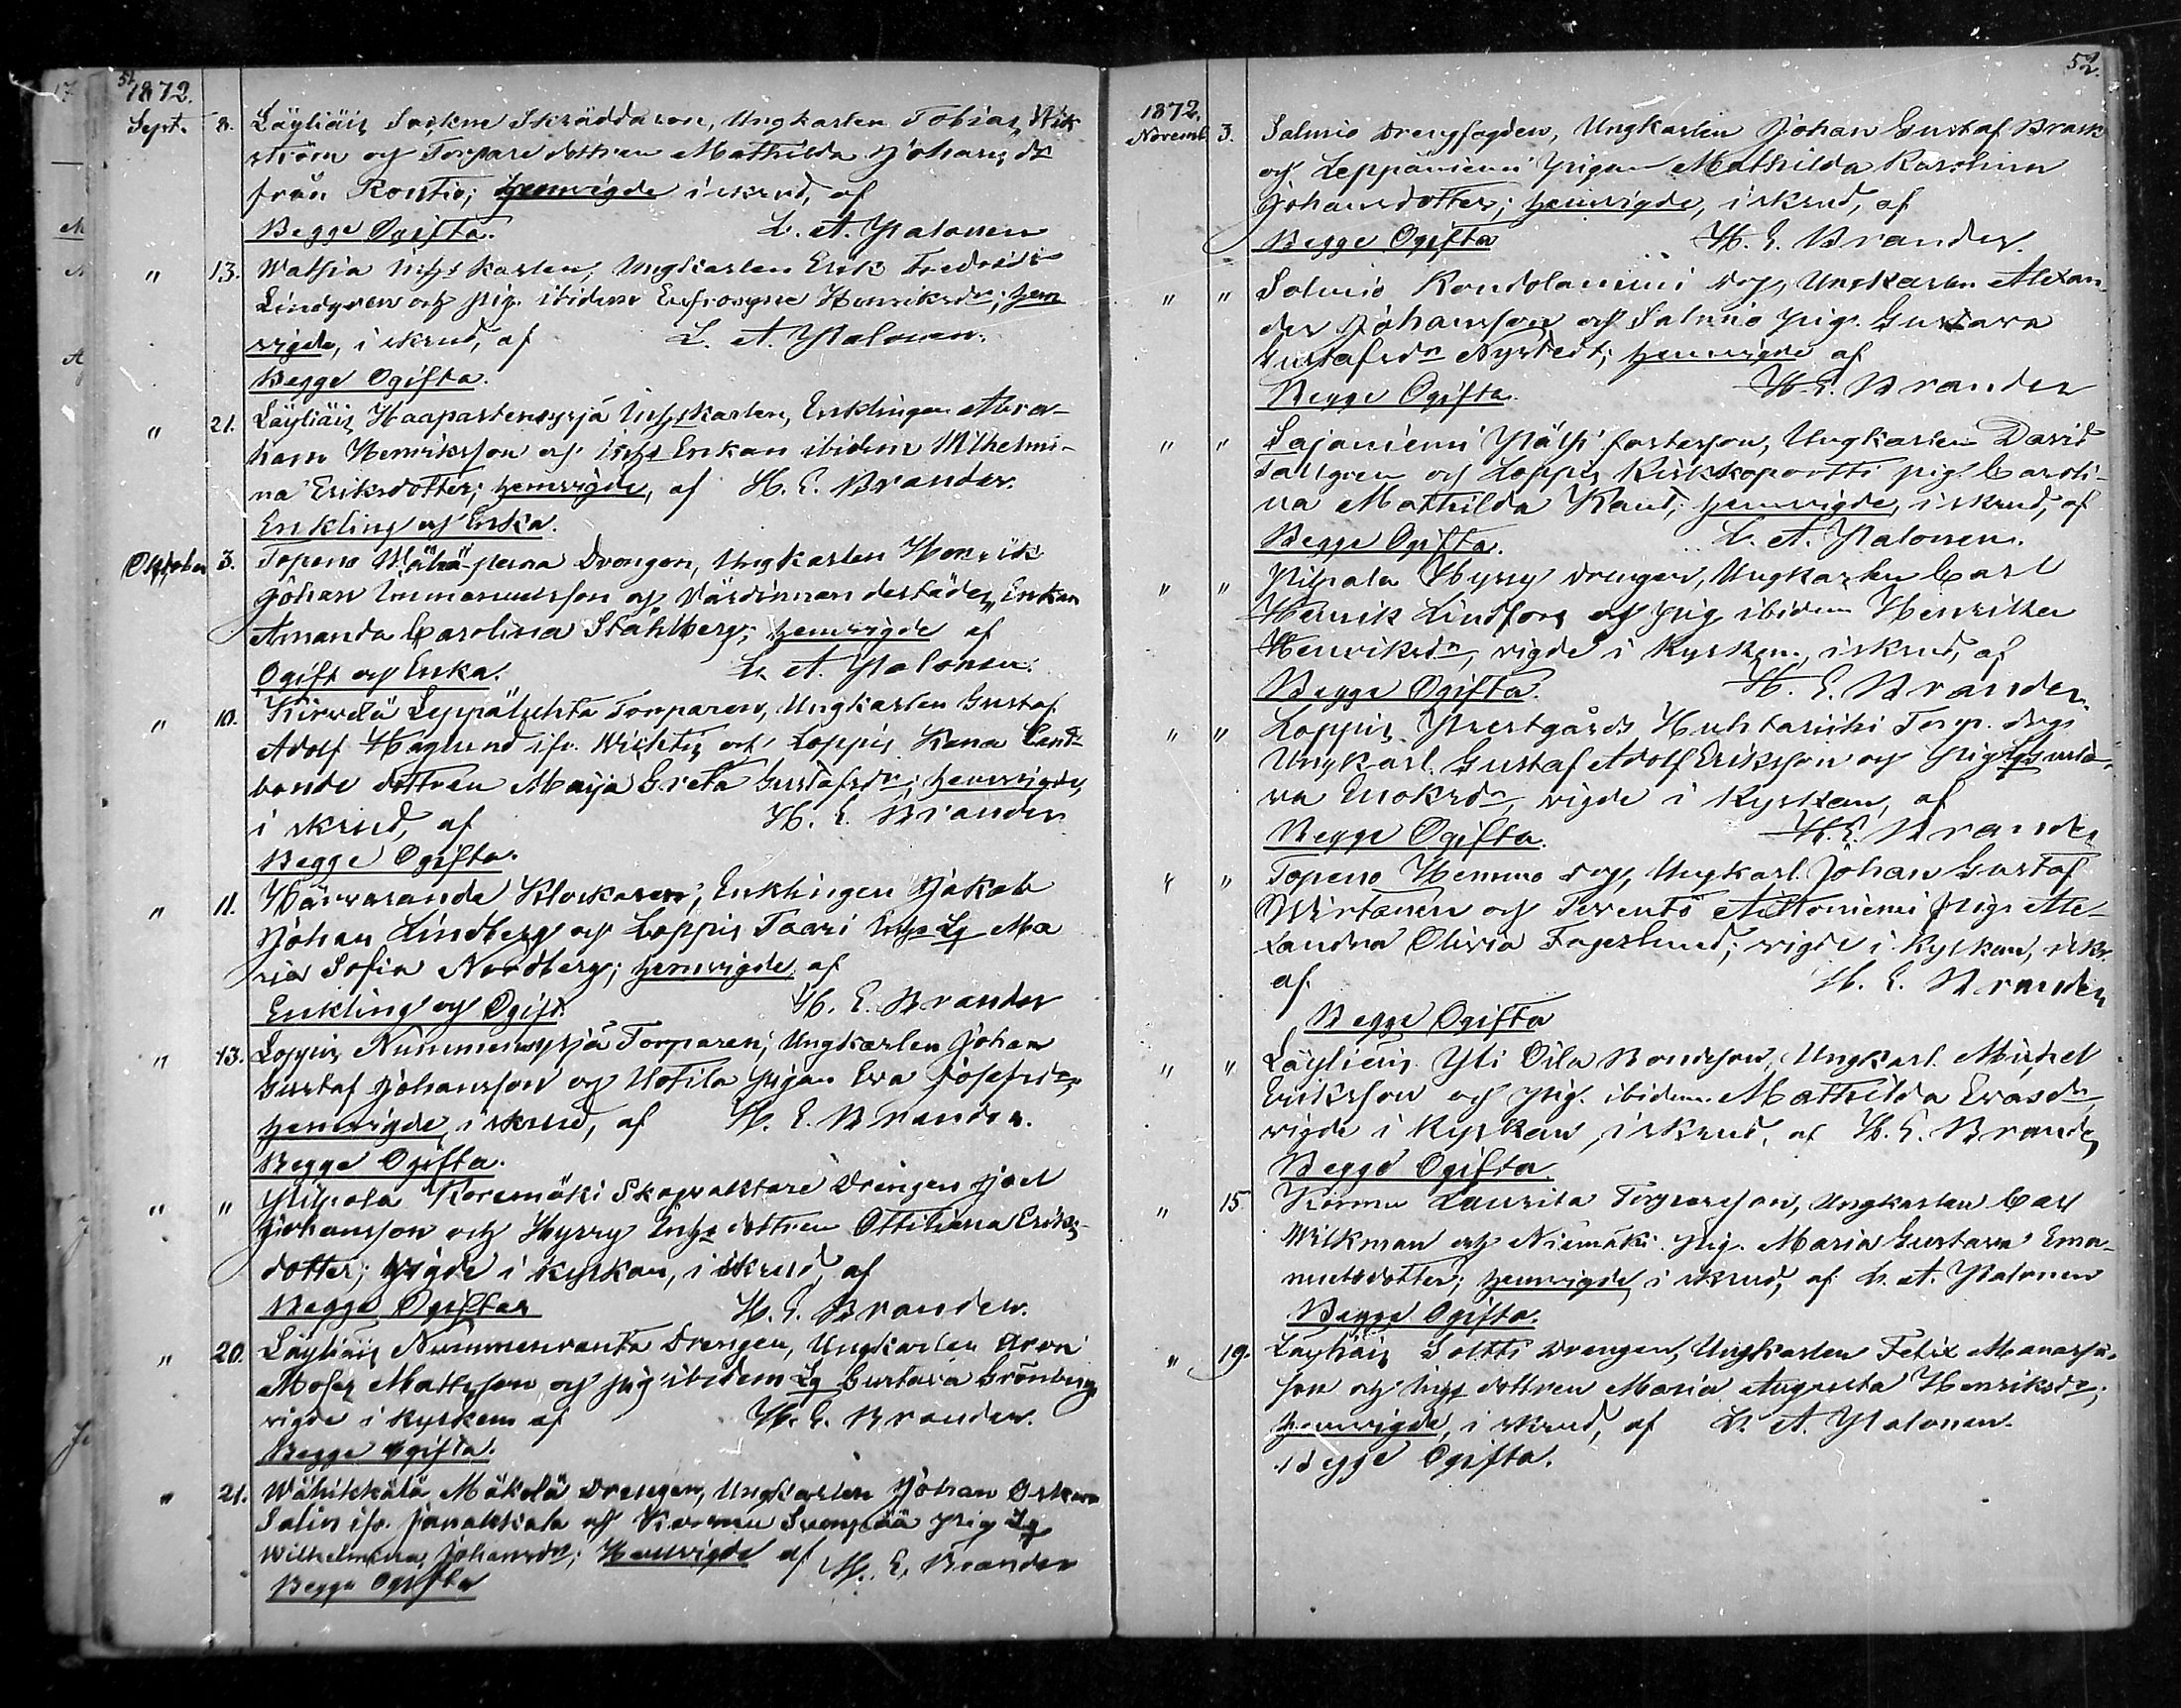 51
1872.
Sept. 8. Läyliäis Sockne Skräddaren, Ungkarlen Tobias Wik
ström och Torpare dottren Mathilda Johansdr
från Kontio; hemvigde i skrud, af
Begge Ogifta. L. A. Palonen
" 13. Inhs karlen, Ungkarlen Erik Fredrik
Lindgren och pig. ibidem Eufrosyne Henriksdr; hem
vigde, i skrud, af L. A. Palonen.
Begge Ogifta.
" 21. Läyliäis Haapastensyrjä Inhs karlen, Enklingen Abra-
ham Henriksson och Inhs Enkan ibidem Wilhelmi-
na Eriksdotter; hemvigde, af H. E. Brander.
Enkling och Enka.
October 3. Topeno Drengen, Ungkarlen Henrik
Johan Immanuelsson och Värdinnan destädes, Enkan
Amanda Carolina Ståhlberg; hemvigde af
Ogift och Enka. L. A. Palonen.
" 10. Leppälahta Torparen, Ungkarlen Gustaf
Adolf Haglund ifr. Wichtis och Loppis Land-
bonde dottren Maija Greta Gustafsdr; hemvigde,
i skrud, af H. E. Brander
Begge Ogifta.
" 11. Klockaren, Enklingen Jakob
Johan Lindberg och Loppis Taari Inhs Lg Ma
ria Sofia Nordberg; hemvigde af
Enkling och Ogift. H. E. Brander
" 13. Loppis Nummensyrjä Torparen, Ungkarlen Johan
Gustaf Johansson och Uotila pigan Eva Josefsdr,
hemvigde, i skrud, af H. E. Brander.
Begge Ogifta.
" " Pilpala Koremäki Skogvaktare Drengen Joel
Johansson och Hyrry Inhs dottren Ottiliana Eriks-
dotter; vigde i kyrkan, i skrud, af
Begge Ogifta H. E. Brander.
" 20. Läyliäis Nummenranta Drengen, Ungkarlen Aron
Moses Mattsson och pig ibidem Lg Gustava Grönberg,
vigde i kyrkan af H. E. Brander.
Begge Ogifta.
" 21. Wähikkälä Mäkelä Drengen, Ungkarlen Johan Oskar
Salin ifr. Janakkala och Kormu Suonpää pig Lg
Wilhelmina Johansdr; Hemvigde af H. E. Brander
Begge Ogifta
52.
1872.
Novemb. 3. Salmio Drengfogden, Ungkarlen Johan Gustaf Brask
och Leppäniemi pigan Mathilda Karolina
Johansdotter; hemvigde, i skrud, af
Begge Ogifta H. E. Brander.
" " Salmio drg, Ungkarlen Alexan-
der Johansson och Salmio pig. Gustava
Gustafsdr Nystedt; hemvigde af
Begge Ogifta. H. E. Brander
" " Sajaniemi fosterson, Ungkarlen David
Tallgren och Loppis Kirkkoportti pig. Caroli-
na Mathilda Kand; hemvigde, i skrud, af
Begge Ogifta. L. A. Palonen.
" " Pilpala Hyrry drengen, Ungkarlen Carl
Henrik Lindfors och pig ibidem Henrika
Henriksdr, vigde i kyrkan, i skrud, af
Begge Ogifta. H. E. Brander.
" " Loppis Prestgårds Huhtariihi Torp. drg
Ungkarl. Gustaf Adolf Eriksson och pig Lg Gusta-
va Enoksdr, vigde i kyrkan, af
Begge Ogifta. H. E. Brander
" " Topeno Hemmo drg, Ungkarl. Johan Gustaf
Wirtanen och Terentö Aittoniemi pig. Ale-
xandra Olivia Fagerlund; vigde i kyrkan, i skr.
af H. E. Brander
Begge Ogifta
" " Läyliäis Yli Oila Bondeson, Ungkarl. Michel
Eriksson och pig. ibidem Mathilda Evasdr,
vigde i kyrkan, i skrud, af H. E. Brander
Begge Ogifta.
" 15 Kormu Laurila Torpareson, Ungkarlen Carl
Wilkman och Niemäki pig. Maria Gustava Ema-
nuelsdotter; hemvigde, i skrud, af L. A. Palonen
Begge Ogifta.
" 19. Läyliäis Soltti drengen, Ungkarlen Felix Manasse-
son och Inhs dottren Maria Augusta Henriksdr;
hemvigde, i skrud, af L. A. Palonen.
Begge Ogifta.